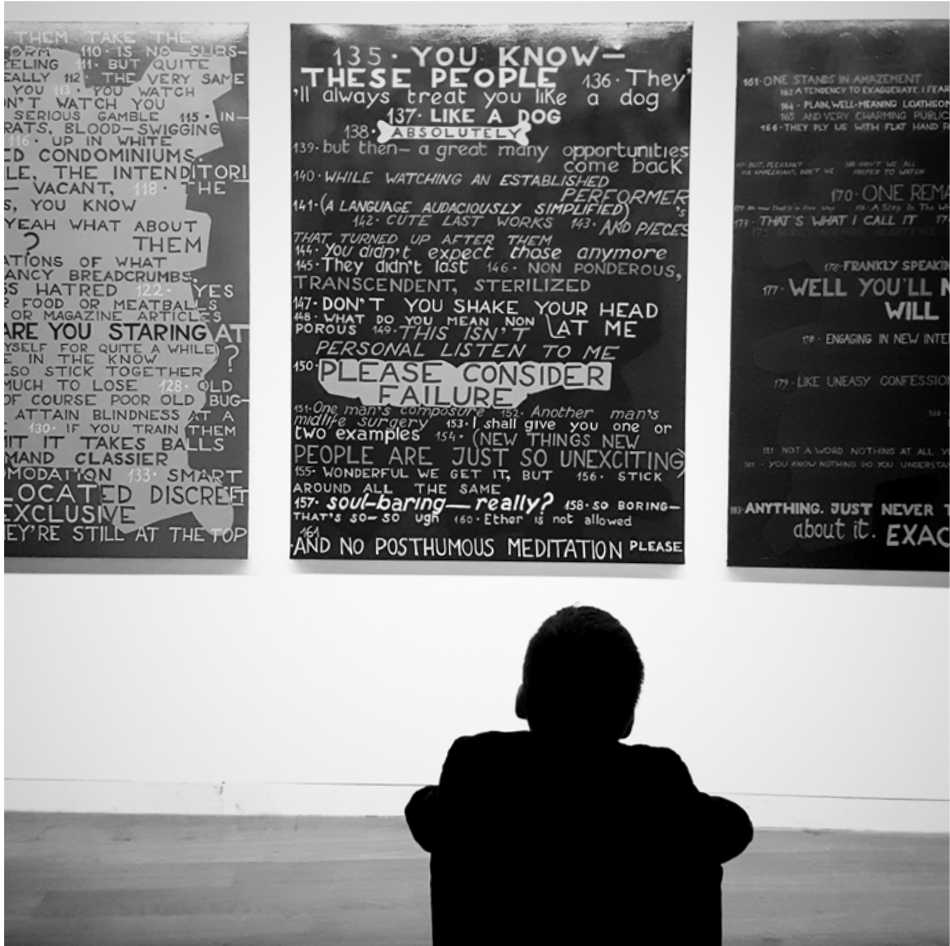 THEM TAKE THE
FORM 110· IS NO SUBS-
EELING 111· BUT QUITE
EALLY 112· THE VERY SAME
YOU 113· YOU WATCH
N'T WATCH YOU
SERIOUS GAMBLE 115· IN-
RATS, BLOOD-SWIGGING
116· UP IN WHITE
ED CONDOMINIUMS.
LE, THE INTENDITORI
— VACANT, 118· THE
S, YOU KNOW
YEAH WHAT ABOUT
? THEM
ATIONS OF WHAT
ANCY BREADCRUMBS,
S HATRED 122· YES
R FOOD OR MEATBALLS
OR MAGAZINE ARTICLES
ARE YOU STARING AT
YSELF FOR QUITE A WHILE)?
E IN THE KNOW
LSO STICK TOGETHER
MUCH TO LOSE 128· OLD
OF COURSE POOR OLD BUG-
ATTAIN BLINDNESS AT A
130· IF YOU TRAIN THEM
IT IT TAKES BALLS
MAND CLASSIER
MODATION 133· SMART
LOCATED DISCREET
EXCLUSIVE
EY'RE STILL AT THE TOP
135· YOU KNOW—
THESE PEOPLE 136· They'
'll always treat you like a dog
137· LIKE A DOG
138· ABSOLUTELY
139· but then— a great many opportunities
come back
140· WHILE WATCHING AN ESTABLISHED
PERFORMER
141·(A LANGUAGE AUDACIOUSLY SIMPLIFIED) 's
142· CUTE LAST WORKS 143· AND PIECES
THAT TURNED UP AFTER THEM
144· You didn't expect those anymore
145· They didn't last 146· NON PONDEROUS,
TRANSCENDENT, STERILIZED
147· DON'T YOU SHAKE YOUR HEAD
148· WHAT DO YOU MEAN NON AT ME
POROUS 149· THIS ISN'T
PERSONAL LISTEN TO ME
150· PLEASE CONSIDER
FAILURE
151· One man's composure 152· Another man's
midlife surgery 153· I shall give you one or
two examples 154· (NEW THINGS NEW
PEOPLE ARE JUST SO UNEXCITING)
155· WONDERFUL WE GET IT, BUT 156· STICK
AROUND ALL THE SAME
157· soul-baring— really? 158· SO BORING—
THAT'S SO-SO ugh 160· Ether is not allowed
161
·AND NO POSTHUMOUS MEDITATION PLEASE
161· ONE STANDS IN AMAZEMENT
162 A TENDENCY TO EXAGGERATE, I FEAR
164· PLAIN, WELL-MEANING
165 AND VERY CHARMING PUBLIC
166· THEY PLY US WITH FLAT HAND
170· ONE REMA
173· THAT'S WHAT I CALL IT
176· FRANKLY SPEAKIN
177· WELL YOU'LL N
WILL
178· ENGAGING IN NEW INTE
179· LIKE UNEASY CONFESSIO
181 NOT A WORD NOTHING AT ALL
YOU KNOW NOTHING DO YOU UNDERSTA
183· ANYTHING. JUST NEVER T
about it. EXAC